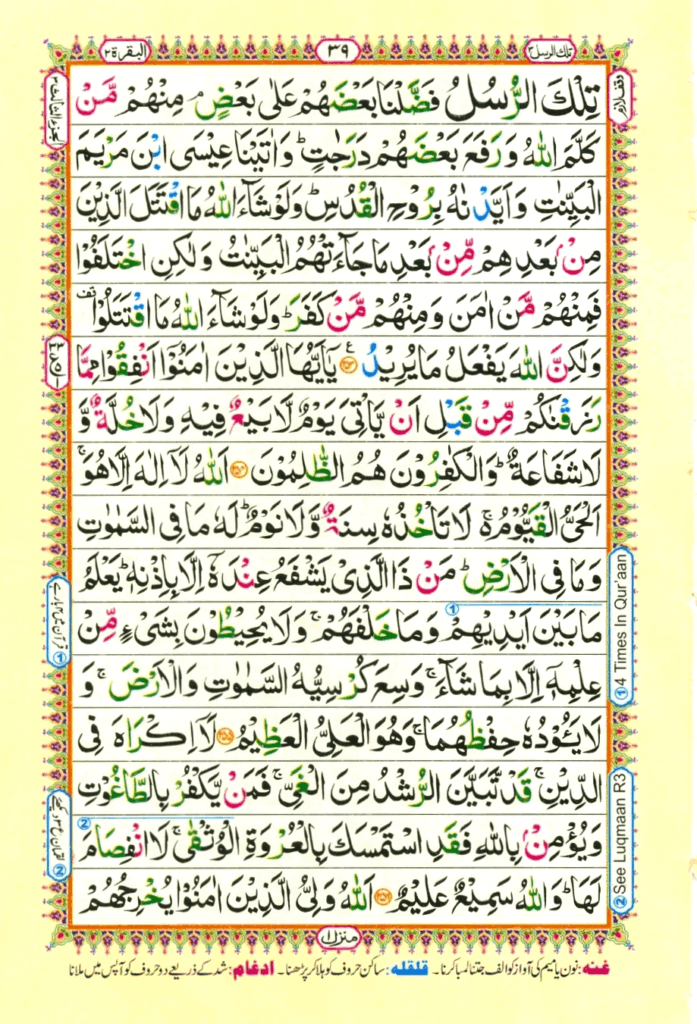 البقرة ٢
٣٩
تلك الرسل ٣
وقف لازم
الجزء الثالث ٣
تِلْكَ الرُّسُلُ فَضَّلْنَا بَعْضَهُمْ عَلٰى بَعْضٍ ۘ مِنْهُمْ مَّنْ
كَلَّمَ اللّٰهُ وَرَفَعَ بَعْضَهُمْ دَرَجٰتٍ ؕ وَاٰتَيْنَا عِيْسَى ابْنَ مَرْيَمَ
الْبَيِّنٰتِ وَاَيَّدْنٰهُ بِرُوْحِ الْقُدُسِ ؕ وَلَوْ شَآءَ اللّٰهُ مَا اقْتَتَلَ الَّذِيْنَ
مِنْۢ بَعْدِهِمْ مِّنْۢ بَعْدِ مَا جَآءَتْهُمُ الْبَيِّنٰتُ وَلٰكِنِ اخْتَلَفُوْا
فَمِنْهُمْ مَّنْ اٰمَنَ وَمِنْهُمْ مَّنْ كَفَرَ ؕ وَلَوْ شَآءَ اللّٰهُ مَا اقْتَتَلُوْا قف
وَلٰكِنَّ اللّٰهَ يَفْعَلُ مَا يُرِيْدُ ﴿۲۵۳﴾ ع يٰۤاَيُّهَا الَّذِيْنَ اٰمَنُوْۤا اَنْفِقُوْا مِمَّا
رَزَقْنٰكُمْ مِّنْ قَبْلِ اَنْ يَّاْتِىَ يَوْمٌ لَّا بَيْعٌ فِيْهِ وَلَا خُلَّةٌ وَّ
لَا شَفَاعَةٌ ؕ وَالْكٰفِرُوْنَ هُمُ الظّٰلِمُوْنَ ﴿۲۵۴﴾ اَللّٰهُ لَاۤ اِلٰهَ اِلَّا هُوَ ۚ
اَلْحَىُّ الْقَيُّوْمُ ۬ۚ لَا تَاْخُذُهٗ سِنَةٌ وَّلَا نَوْمٌ ؕ لَهٗ مَا فِى السَّمٰوٰتِ
وَمَا فِى الْاَرْضِ ؕ مَنْ ذَا الَّذِىْ يَشْفَعُ عِنْدَهٗۤ اِلَّا بِاِذْنِهٖ ؕ يَعْلَمُ
مَا بَيْنَ اَيْدِيْهِمْ وَمَا خَلْفَهُمْ ۚ وَلَا يُحِيْطُوْنَ بِشَىْءٍ مِّنْ
عِلْمِهٖۤ اِلَّا بِمَا شَآءَ ۚ وَسِعَ كُرْسِيُّهُ السَّمٰوٰتِ وَالْاَرْضَ ۚ وَ
لَا يَـُٔوْدُهٗ حِفْظُهُمَا ۚ وَهُوَ الْعَلِىُّ الْعَظِيْمُ ﴿۲۵۵﴾ لَاۤ اِكْرَاهَ فِى
الدِّيْنِ ۙ قَدْ تَّبَيَّنَ الرُّشْدُ مِنَ الْغَىِّ ۚ فَمَنْ يَّكْفُرْ بِالطَّاغُوْتِ
وَيُؤْمِنْۢ بِاللّٰهِ فَقَدِ اسْتَمْسَكَ بِالْعُرْوَةِ الْوُثْقٰى ۗ لَا انْفِصَامَ
لَهَا ؕ وَاللّٰهُ سَمِيْعٌ عَلِيْمٌ ﴿۲۵۶﴾ اَللّٰهُ وَلِىُّ الَّذِيْنَ اٰمَنُوْا يُخْرِجُهُمْ
① 4 Times In Qur'aan
② See Luqmaan R3
منزل ١
غنہ: نون یا میم کی آواز کو الف جتنا لمبا کرنا۔ قلقلہ: ساکن حروف کو ہلا کر پڑھنا۔ ادغام: شد کے ذریعے دو حروف کو آپس میں ملانا